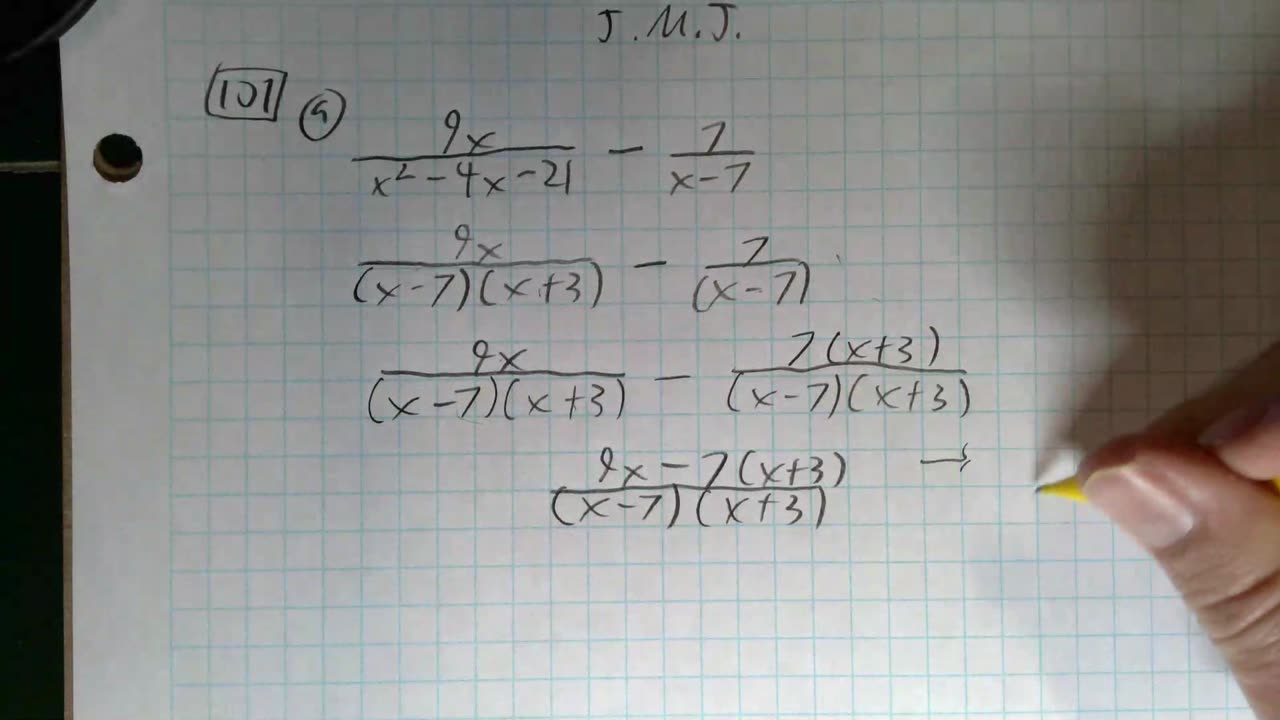 J.M.J.
101 a
9x / (x² - 4x - 21) - 7 / (x - 7)
9x / ((x - 7)(x + 3)) - 7 / (x - 7)
9x / ((x - 7)(x + 3)) - 7(x + 3) / ((x - 7)(x + 3))
(9x - 7(x + 3)) / ((x - 7)(x + 3)) →